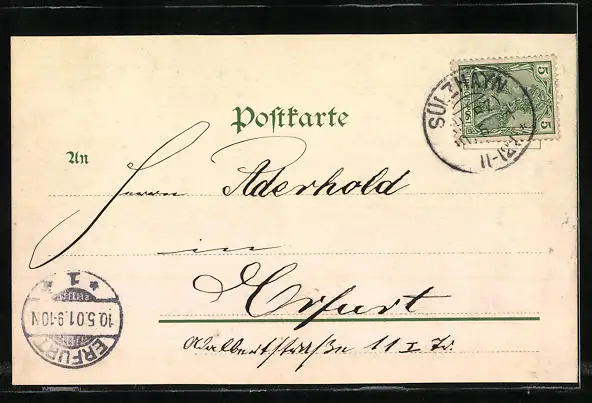 Postkarte
SÜLZHAYN
5
5
11-12
An
Herrn Aderhold
in
Erfurt
Adalbertstraße 11 I
ERFURT
10.5.01.9-10N
* 1 *